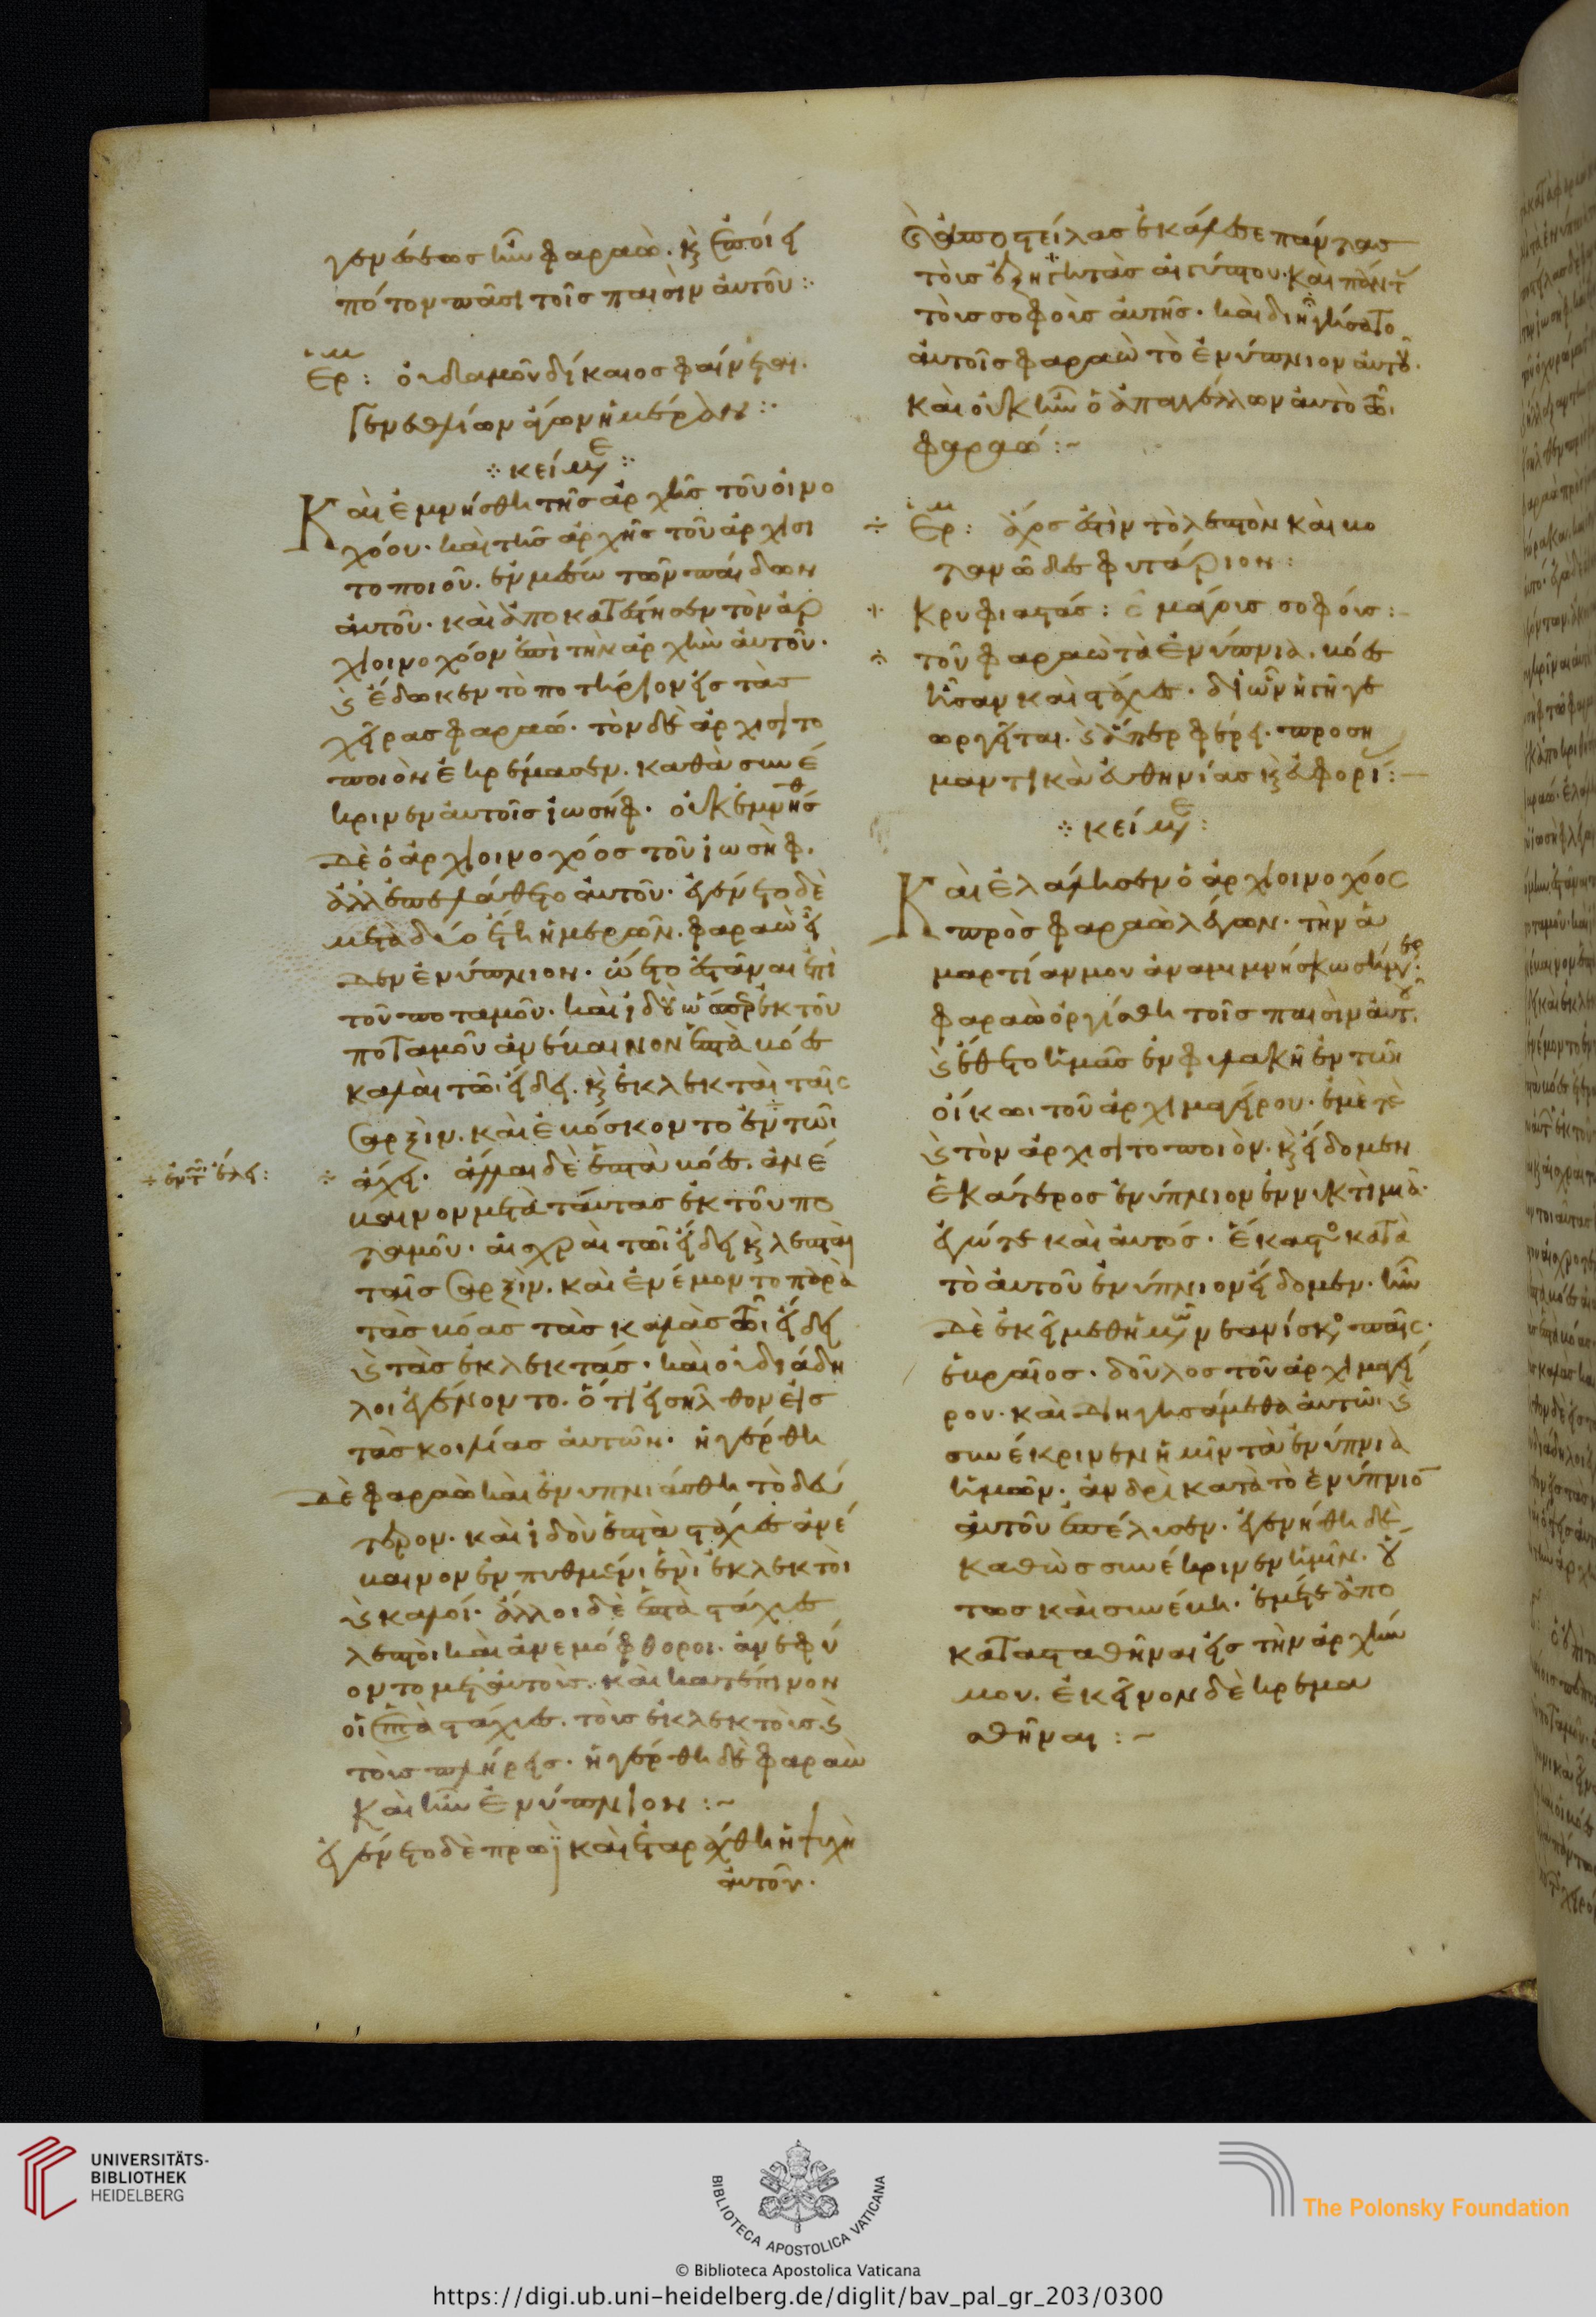 γενέσεως ἦν φαραώ· κ(αὶ) ἐποίει
πότον πᾶσι τοῖς παισὶν αὐτοῦ:
Ερμ: οὐδαμοῦ δίκαιος φαίνεται
γενεθλίων ἄγων ἡμέραν:
κείμε
Καὶ ἐμνήσθη τῆς ἀρχῆς τοῦ οἰνο
χόου· καὶ τῆς ἀρχῆς τοῦ ἀρχισι
τοποιοῦ. ἐν μέσω τῶν παίδων
αὐτοῦ· καὶ ἀποκατέστησεν τὸν ἀρ
χιοινοχόον ἐπὶ τὴν ἀρχὴν αὐτοῦ·
κ(αὶ) ἔδωκεν τὸ ποτήριον εἰς τὰς
χεῖρας φαραώ· τὸν δὲ ἀρχισιτο
ποιὸν ἐκρέμασεν. καθὰ συνέ
κρινεν αὐτοῖς ἰωσήφ· οὐκ ἐμνήσθ
δὲ ὁ ἀρχιοινοχόος τοῦ ἰωσὴφ.
ἀλλ' ἐπελάθετο αὐτοῦ· ἐγένετο δὲ
μετὰ δύο ἔτη ἡμερῶν. φαραὼ εἶ
δεν ἐνύπνιον. ὤετο ἑστάναι ἐπὶ
τοῦ ποταμοῦ· καὶ ἰδοὺ ὥσπερ ἐκ τοῦ
ποταμοῦ ἀνέβαινον ἑπτὰ βόες
καλαὶ τῶι εἴδει. κ(αὶ) ἐκλεκταὶ ταῖς
σαρξίν. καὶ ἐβόσκοντο ἐν τῶι
ἄχει· ἄλλαι δὲ ἑπτὰ βόες. ἀνέ
÷ ἐν τῶ ἕλει:
βαινον μετὰ ταύτας ἐκ τοῦ πο
ταμοῦ· αἰσχραὶ τῶι εἴδει κ(αὶ) λεπταὶ
ταῖς σαρξίν. καὶ ἐνέμοντο παρὰ
τὰς βόας τὰς καλὰς τῶι εἴδει
κ(αὶ) τὰς ἐκλεκτάς· καὶ οὐ διάδη
λοι ἐγένοντο. ὅτι εἰσῆλθον εἰς
τὰς κοιλίας αὐτῶν· ἠγέρθη
δὲ φαραὼ καὶ ἐνυπνιάσθη τὸ δεύ
τερον· καὶ ἰδοὺ ἑπτὰ στάχυες ἀνέ
βαινον ἐν πυθμένι ἑνὶ ἐκλεκτοὶ
κ(αὶ) καλοί· ἄλλοι δὲ ἑπτὰ στάχυες
λεπτοὶ καὶ ἀνεμόφθοροι. ἀνεφύ
οντο μετ' αὐτοὺς. καὶ κατέπινον
οἱ ἑπτὰ στάχυες. τοὺς ἐκλεκτοὺς κ(αὶ)
τοὺς πλήρεις. ἠγέρθη δὲ φαραὼ
καὶ ἦν ἐνύπνιον:~
ἐγένετο δὲ πρωῒ καὶ ἐταράχθη ἡ ψυχὴ
αὐτοῦ.
κ(αὶ) ἀποστείλας ἐκάλεσε πάντας
τοὺς ἐξηγητὰς αἰγύπτου. καὶ πάντ
τοὺς σοφοὺς αὐτῆς· καὶ διηγήσατο
αὐτοῖς φαραὼ τὸ ἐνύπνιον αὐτοῦ.
καὶ οὐκ ἦν ὁ ἀπαγγέλλων αὐτὸ τῶι
φαραώ:~
÷ Ερμ: ἄχος ἐστὶν τὸ λεπτὸν καὶ βο
τανῶδες φυτάριον:
κρυφιαστάς: μάγοις σοφόις:
τοῦ φαραὼ τὰ ἐνύπνια. βόες
ἦσαν καὶ στάχυες. δι' ὧν ἡ γῆ γε
ωργεῖται. κ(αὶ) ἅπερ φέρει. προση
μαντικὰ εὐθηνίας κ(αὶ) ἀφορί:
κείμε:
Καὶ ἐλάλησεν ὁ ἀρχιοινοχόος
πρὸς φαραὼ λέγων· τὴν ἁ
μαρτίαν μου ἀναμιμνήσκω σήμερ
φαραὼ ὀργίσθη τοῖς παισὶν αὐτοῦ.
κ(αὶ) ἔθετο ἡμᾶς ἐν φυλακῆ ἐν τῶι
οἴκωι τοῦ ἀρχιμαγείρου. ἐμὲ τὲ
κ(αὶ) τὸν ἀρχισιτοποιὸν. κ(αὶ) εἴδομεν
ἑκάτερος ἐνύπνιον ἐν νυκτὶ μιᾶ·
ἐγώ τε καὶ αὐτός· ἕκαστο κατὰ
τὸ αὐτοῦ ἐνύπνιον εἴδομεν. ἦν
δὲ ἐκεῖ μεθ' ἡμῶν νεανίσκο παῖς.
ἑβραῖος· δοῦλος τοῦ ἀρχιμαγεί
ρου. καὶ διηγησάμεθα αὐτῶ. κ(αὶ)
συνέκρινεν ἡμῖν τὰ ἐνύπνια
ἡμῶν. ἀνδρὶ κατὰ τὸ ἐνύπνιο
αὐτοῦ ἐπέλυσεν. ἐγενήθη δὲ
καθὼς συνέκρινεν ἡμῖν. οὕ
τως καὶ συνέβη. ἐμέ τε ἀπο
κατασταθῆναι εἰς τὴν ἀρχήν
μου. ἐκεῖνον δὲ κρεμα
σθῆναι:~
UNIVERSITÄTS-
BIBLIOTHEK
HEIDELBERG
BIBLIOTECA APOSTOLICA VATICANA
The Polonsky Foundation
© Biblioteca Apostolica Vaticana
https://digi.ub.uni-heidelberg.de/diglit/bav_pal_gr_203/0300